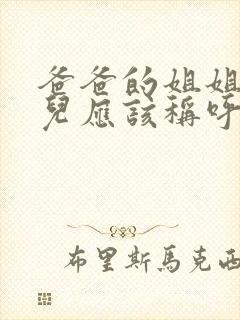 爸爸的姐姐
兒應該稱呼
布里斯馬克西